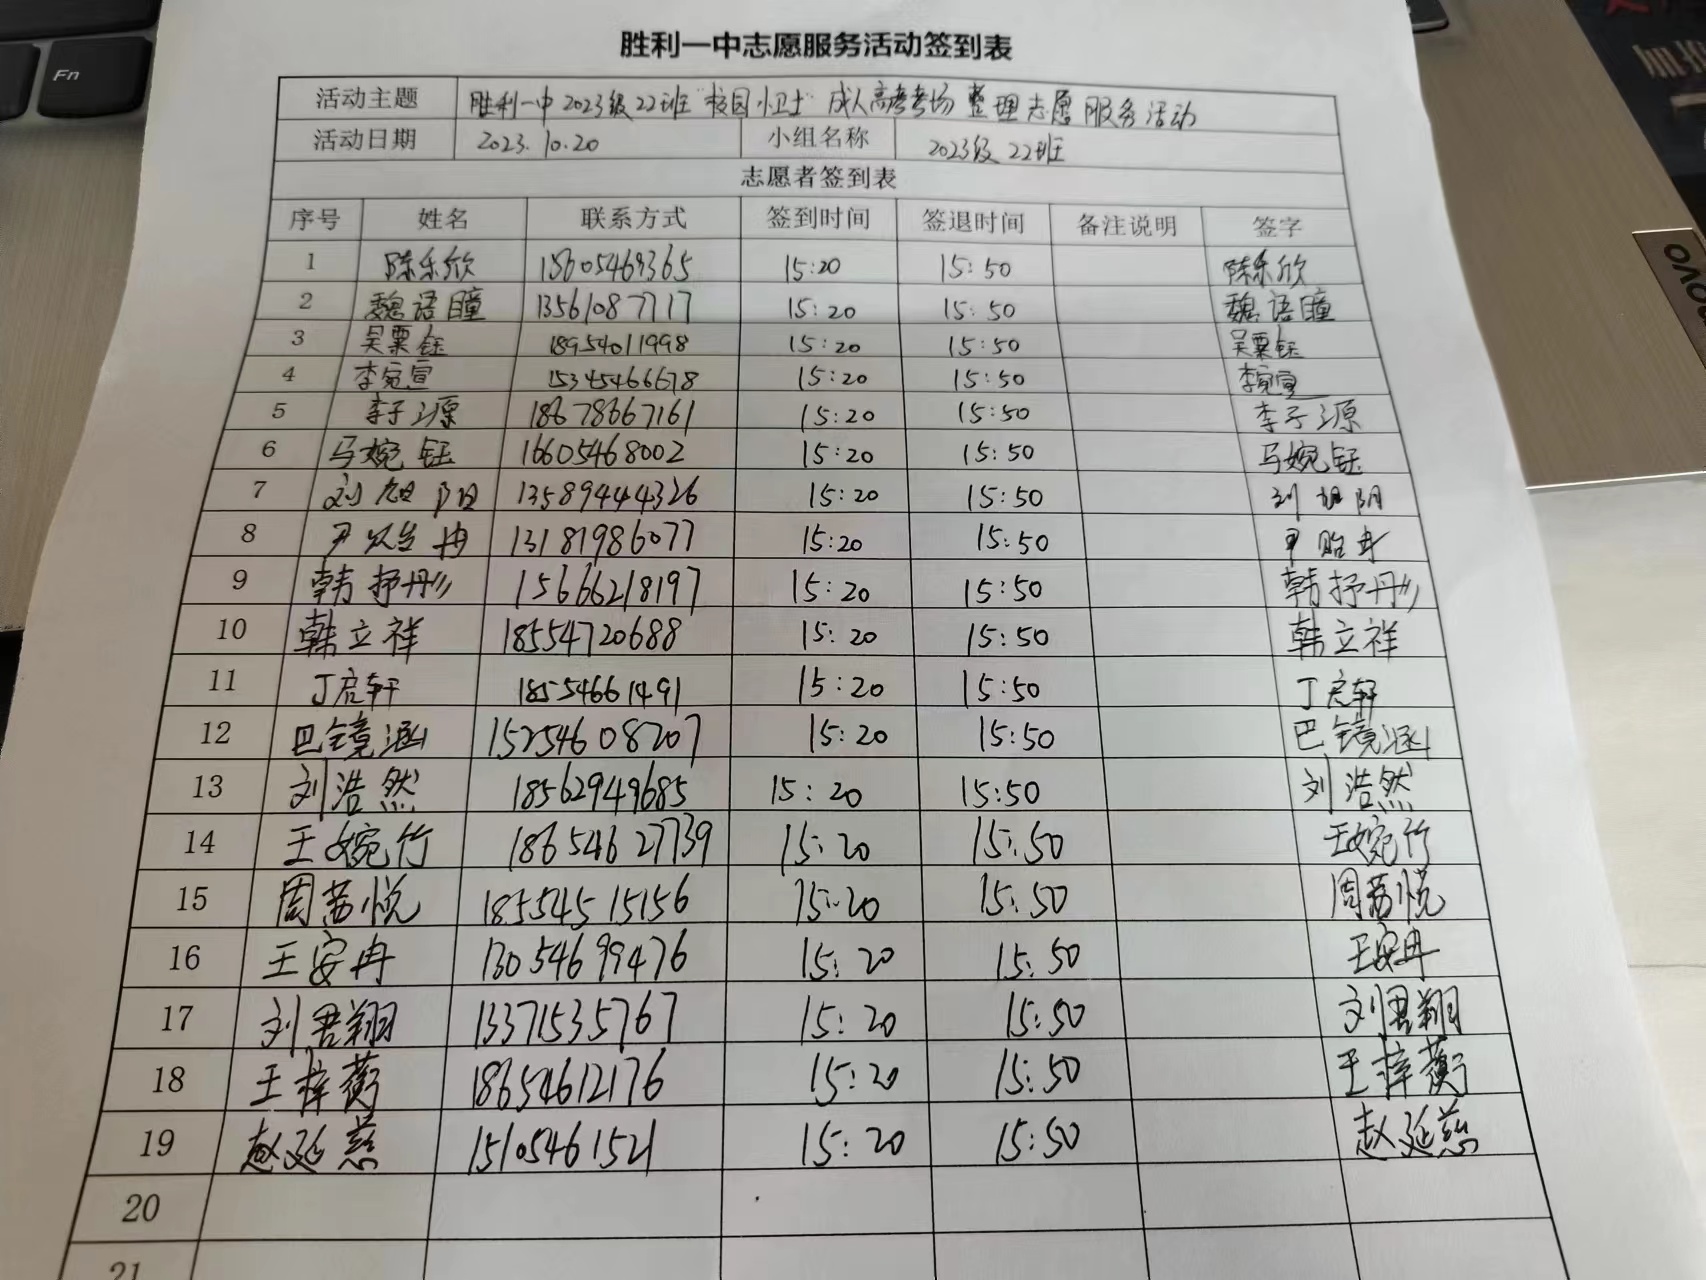 Fn
胜利一中志愿服务活动签到表
活动主题 胜利一中2023级22班"校园小卫士"成人高考考场整理志愿服务活动
活动日期 2023.10.20 小组名称 2023级22班
志愿者签到表
序号 姓名 联系方式 签到时间 签退时间 备注说明 签字
1 陈乐欣 15605469365 15:20 15:50 陈乐欣
2 魏语瞳 13561087717 15:20 15:50 魏语瞳
3 吴粟钰 18954011998 15:20 15:50 吴粟钰
4 李宛宣 15345466678 15:20 15:50 李宛宣
5 李子源 18678667161 15:20 15:50 李子源
6 马婉钰 16605468002 15:20 15:50 马婉钰
7 刘旭阳 13589444326 15:20 15:50 刘旭阳
8 尹贻冉 13181986077 15:20 15:50 尹贻冉
9 韩抒彤 15666218197 15:20 15:50 韩抒彤
10 韩立祥 18554720688 15:20 15:50 韩立祥
11 丁启轩 18554661491 15:20 15:50 丁启轩
12 巴镜涵 15254608207 15:20 15:50 巴镜涵
13 刘浩然 18562949685 15:20 15:50 刘浩然
14 王婉竹 18654627739 15:20 15:50 王婉竹
15 周茜悦 18554515156 15:20 15:50 周茜悦
16 王安冉 13054699476 15:20 15:50 王安冉
17 刘君翔 13371535767 15:20 15:50 刘君翔
18 王梓蘅 18654612176 15:20 15:50 王梓蘅
19 赵延慈 15105461521 15:20 15:50 赵延慈
20
21